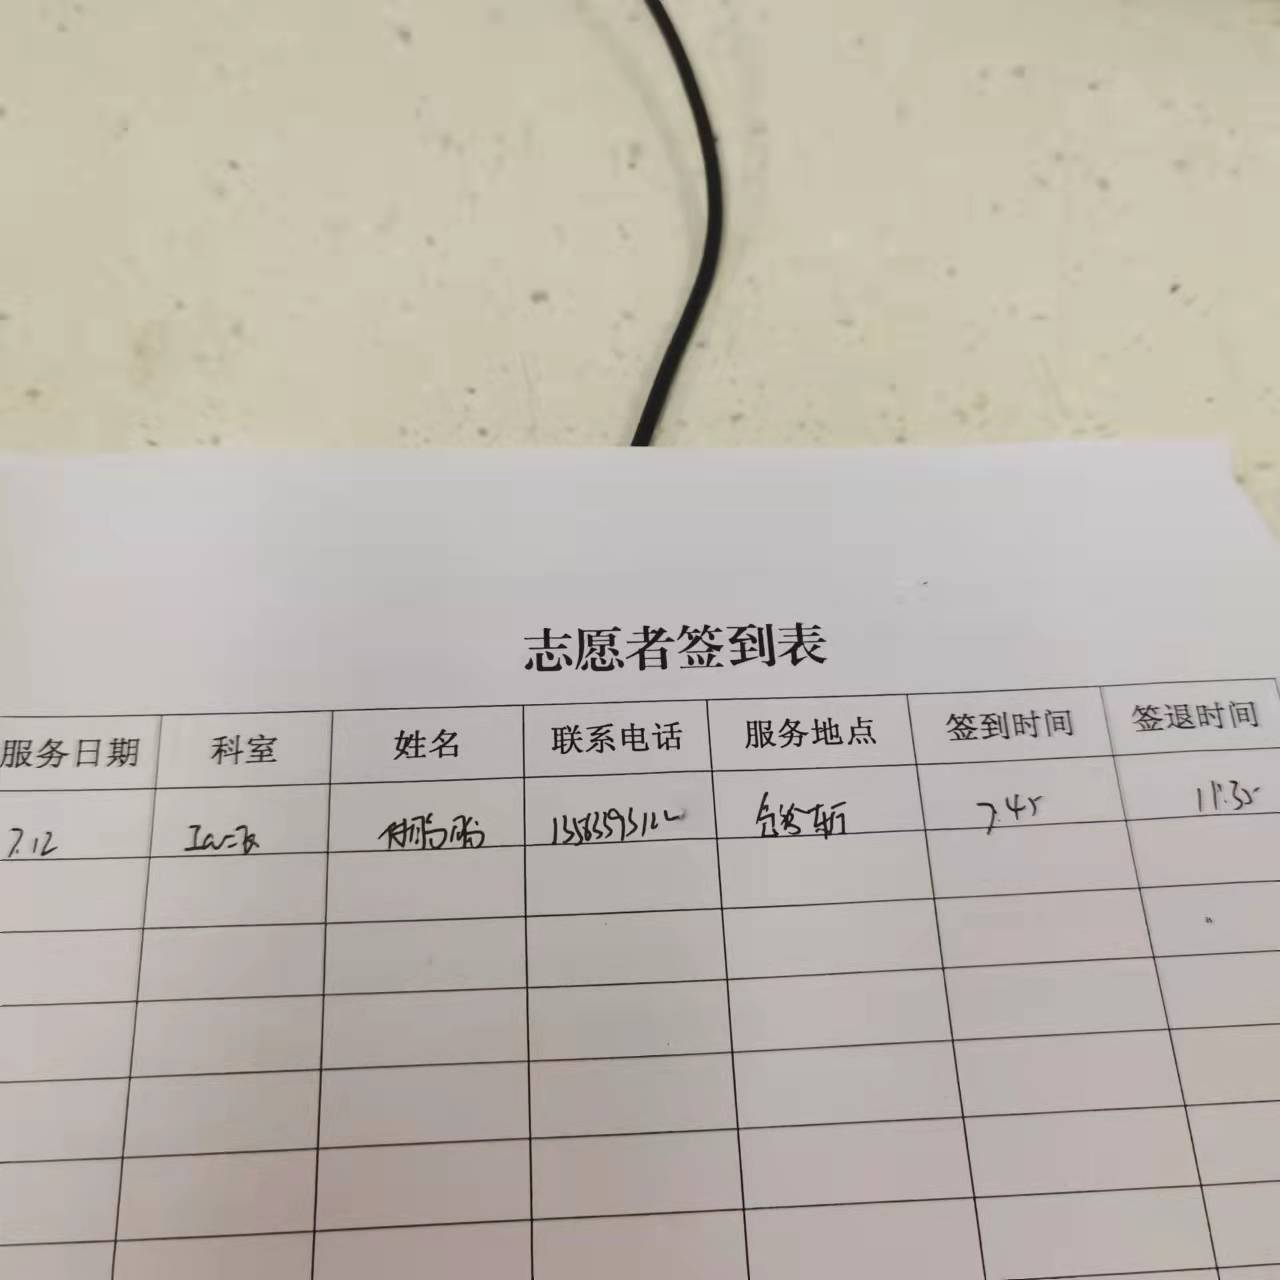 志愿者签到表
服务日期 科室 姓名 联系电话 服务地点 签到时间 签退时间
7.12 7.45 11.35